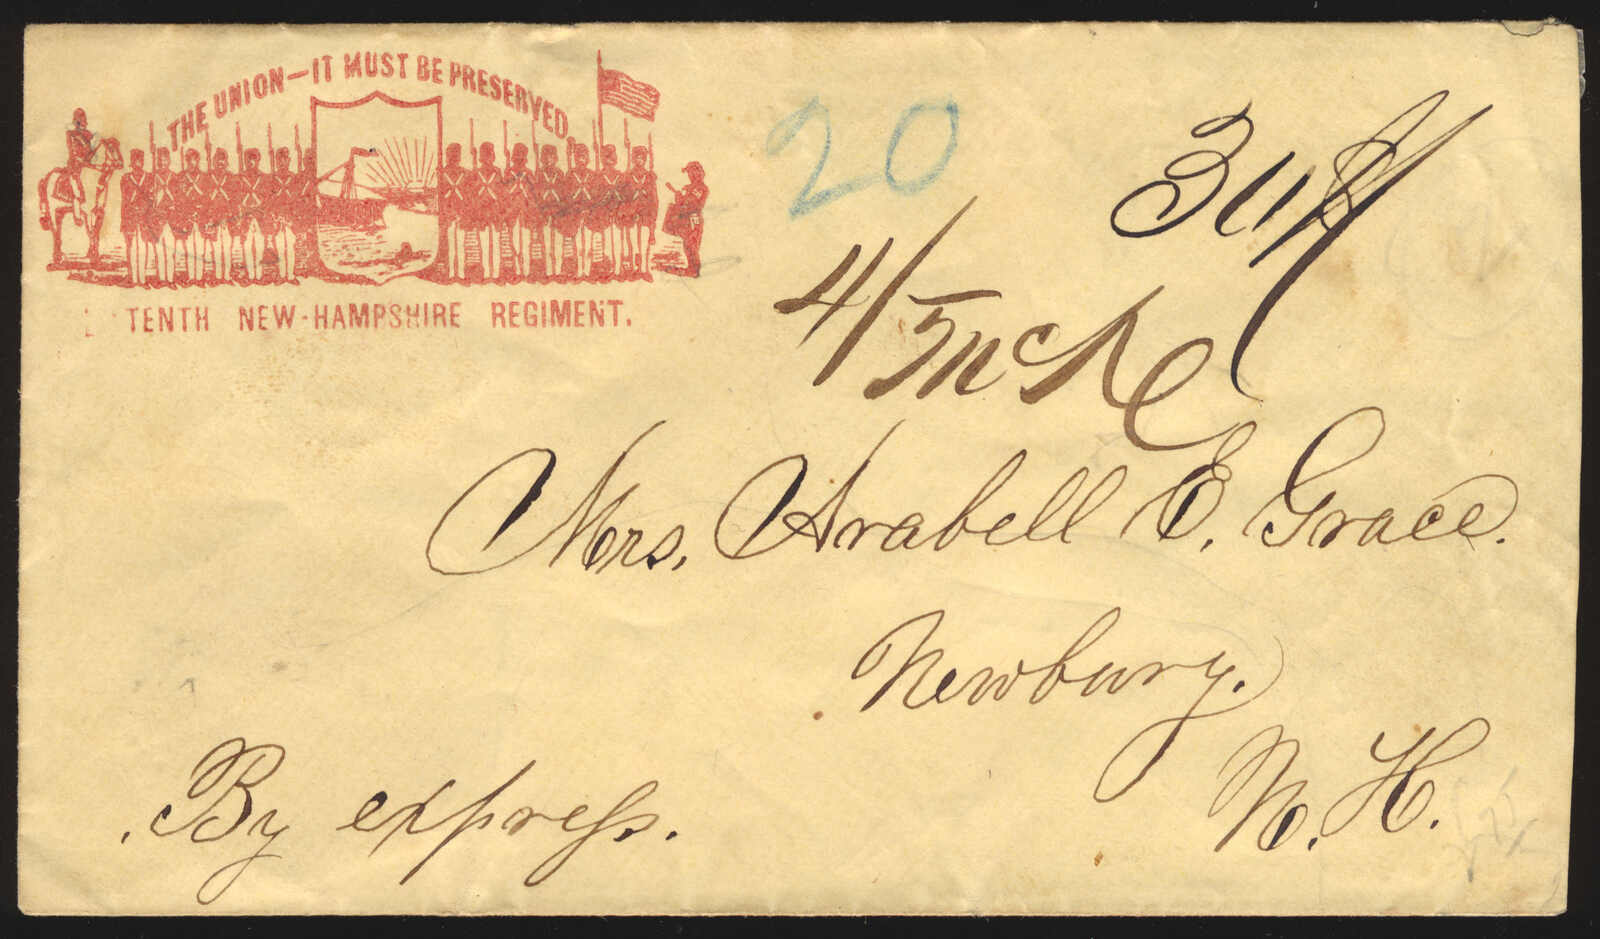 THE UNION—IT MUST BE PRESERVED.
TENTH NEW-HAMPSHIRE REGIMENT.
20
Mrs. Arabell E. Grace.
Newbury.
N. H.
By express.